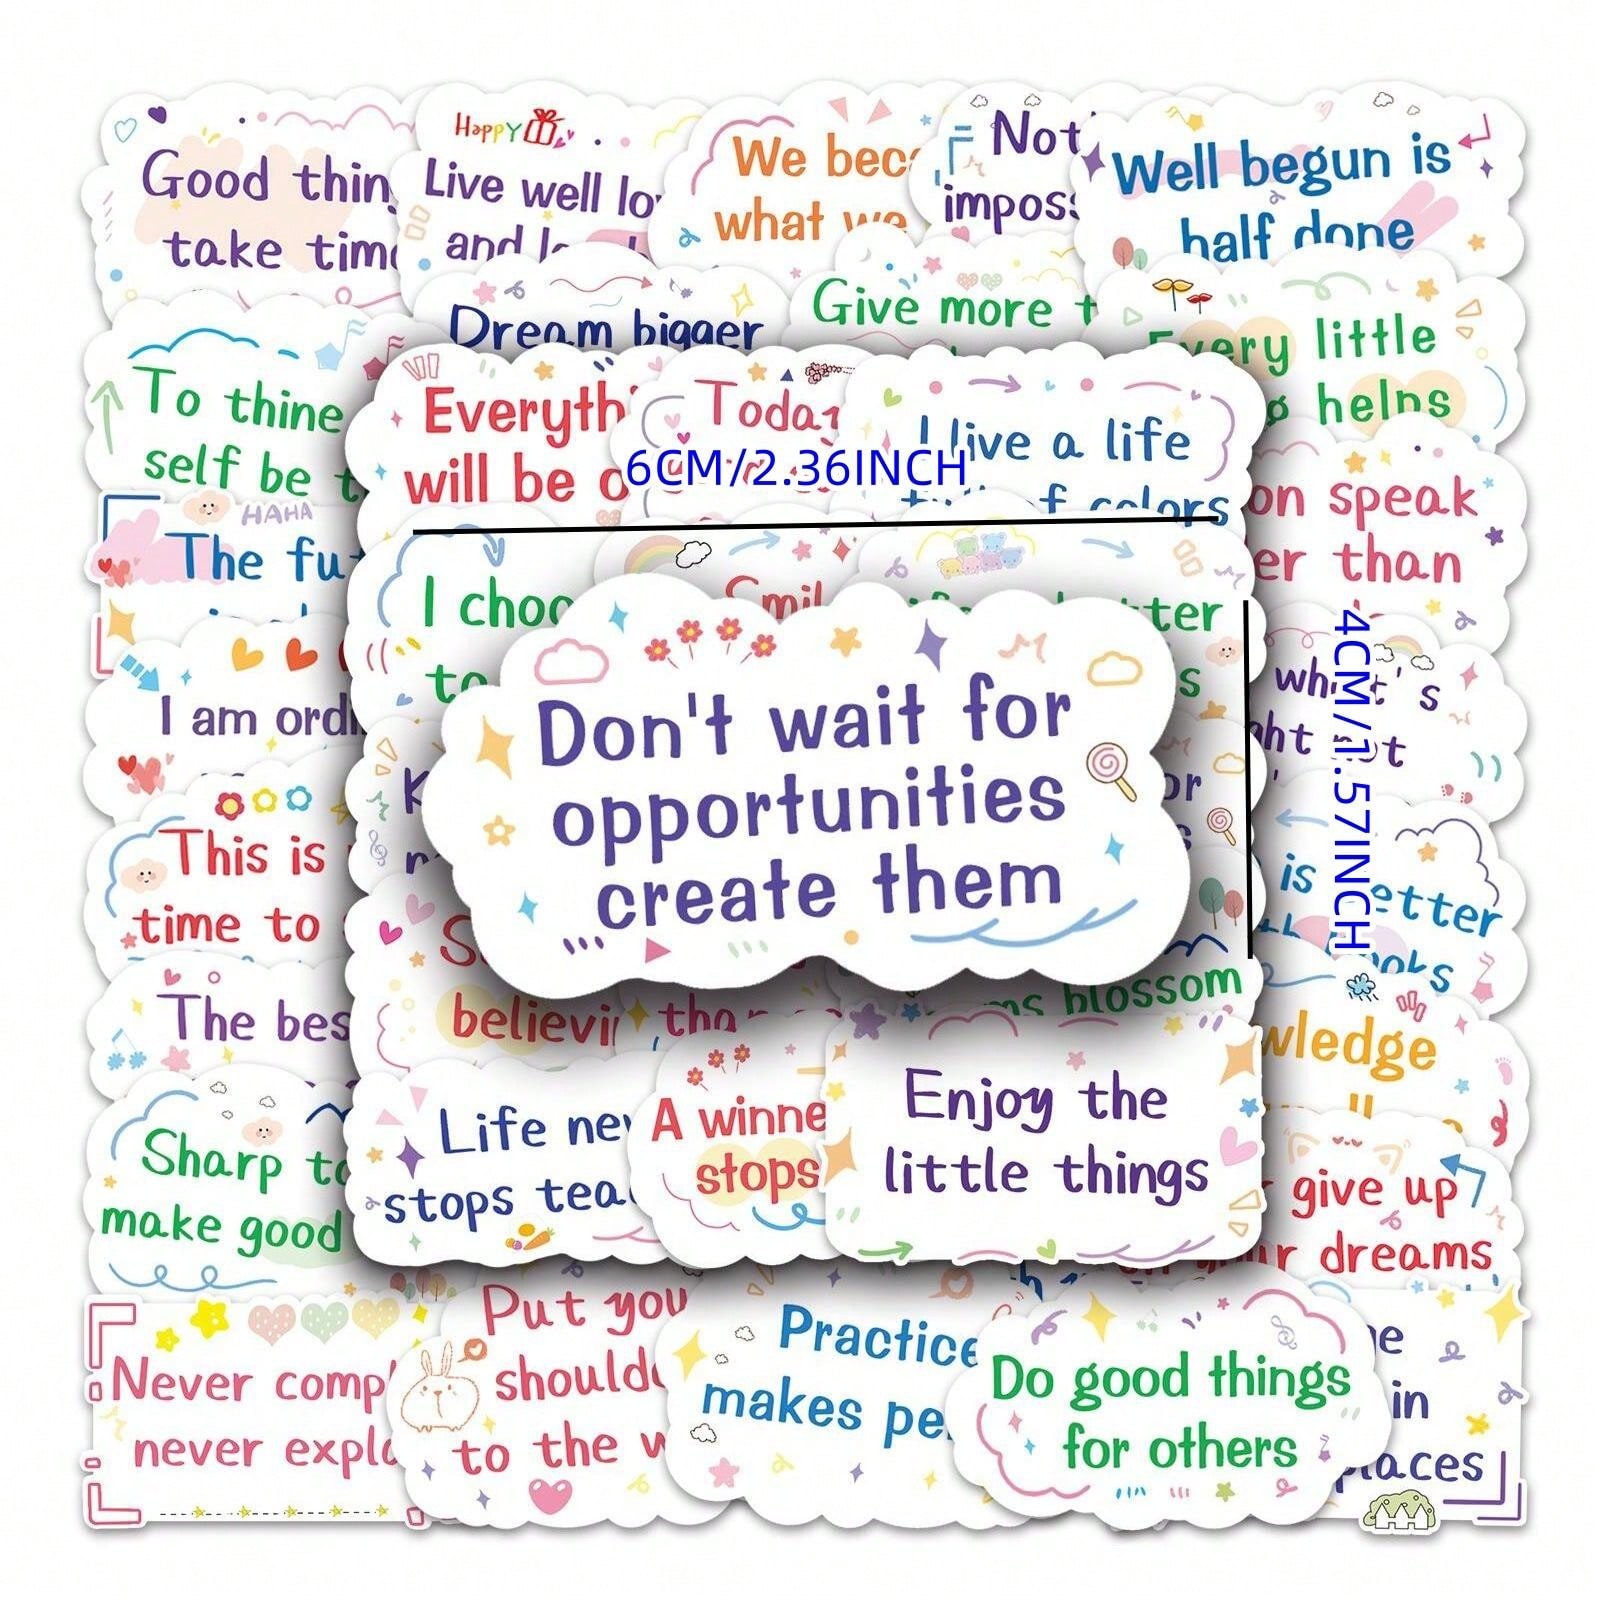 Good thin
take time
Happy
Live well lo
and l
We bec
what we
Not
imposs
Well begun is
half done
Dream bigger
Give more t
Every little
helps
To thine
self be t
Everyth
will be o
Today
live a life
full of colors
6CM/2.36INCH
on speak
er than
HAHA
The fu
I choo
to
Smil
tter
s
4CM/1.57INCH
what's
ght not
I am ordi
Don't wait for
opportunities
create them
K
or
This is
time to
is better
books
S
believin
than
ms blossom
The bes
wledge
Life nev
stops tea
A winne
stops
Enjoy the
little things
Sharp to
make good
give up
on your dreams
Never comp
never expla
Put you
should
to the w
Practice
makes pe
Do good things
for others
e
in
places